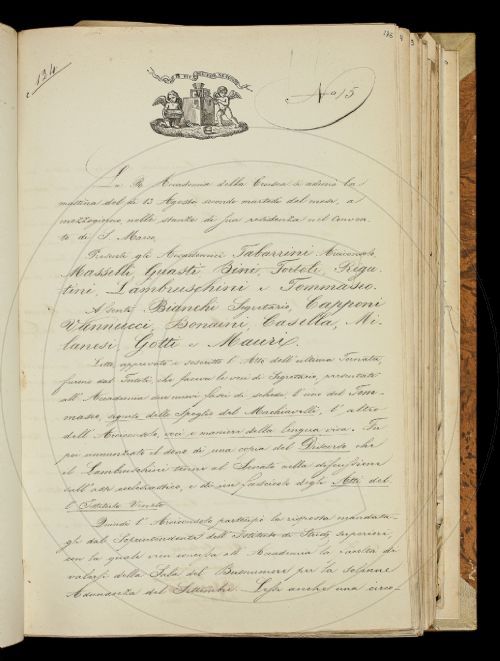 134
No 15
La R. Accademia della Crusca si adunò la
mattina del dì 13 Agosto secondo martedì del mese, a
mezzogiorno, nelle stanze di sua residenza nel Conven-
to di S. Marco.
Presenti gli Accademici Tabarrini Arciconsolo,
Masselli, Guasti, Bini, Tortoli, Rigu-
tini, Lambruschini e Tommaseo.
Assenti, Bianchi Segretario, Capponi
Vannucci, Bonaini, Casella, Mi-
lanesi, Gotti e Mauri.
Letto, approvato e soscritto l'Atto dell'ultima Tornata,
furono dal Tortoli, che faceva le veci di Segretario, presentate
all'Accademia due nuovi fasci di schede, l'uno del Tom-
maseo, seguito dello Spoglio del Machiavelli, l'altro
dell'Arciconsolo, voci e maniere della lingua viva. Fu
poi annunziato il dono di una copia del Discorso che
il Lambruschini tenne al Senato nella discussione
sull'asse ecclesiastico, e di un fascicolo degli Atti del
l'Istituto Veneto
Quindi l'Arciconsolo partecipò la risposta mandata-
gli dal Soprintendente dell'Istituto di Studj superiori,
con la quale vien concessa all'Accademia la facoltà di
valersi della Sala del Buonumore per la solenne
Adunanza del Settembre. Lesse anche una circo-